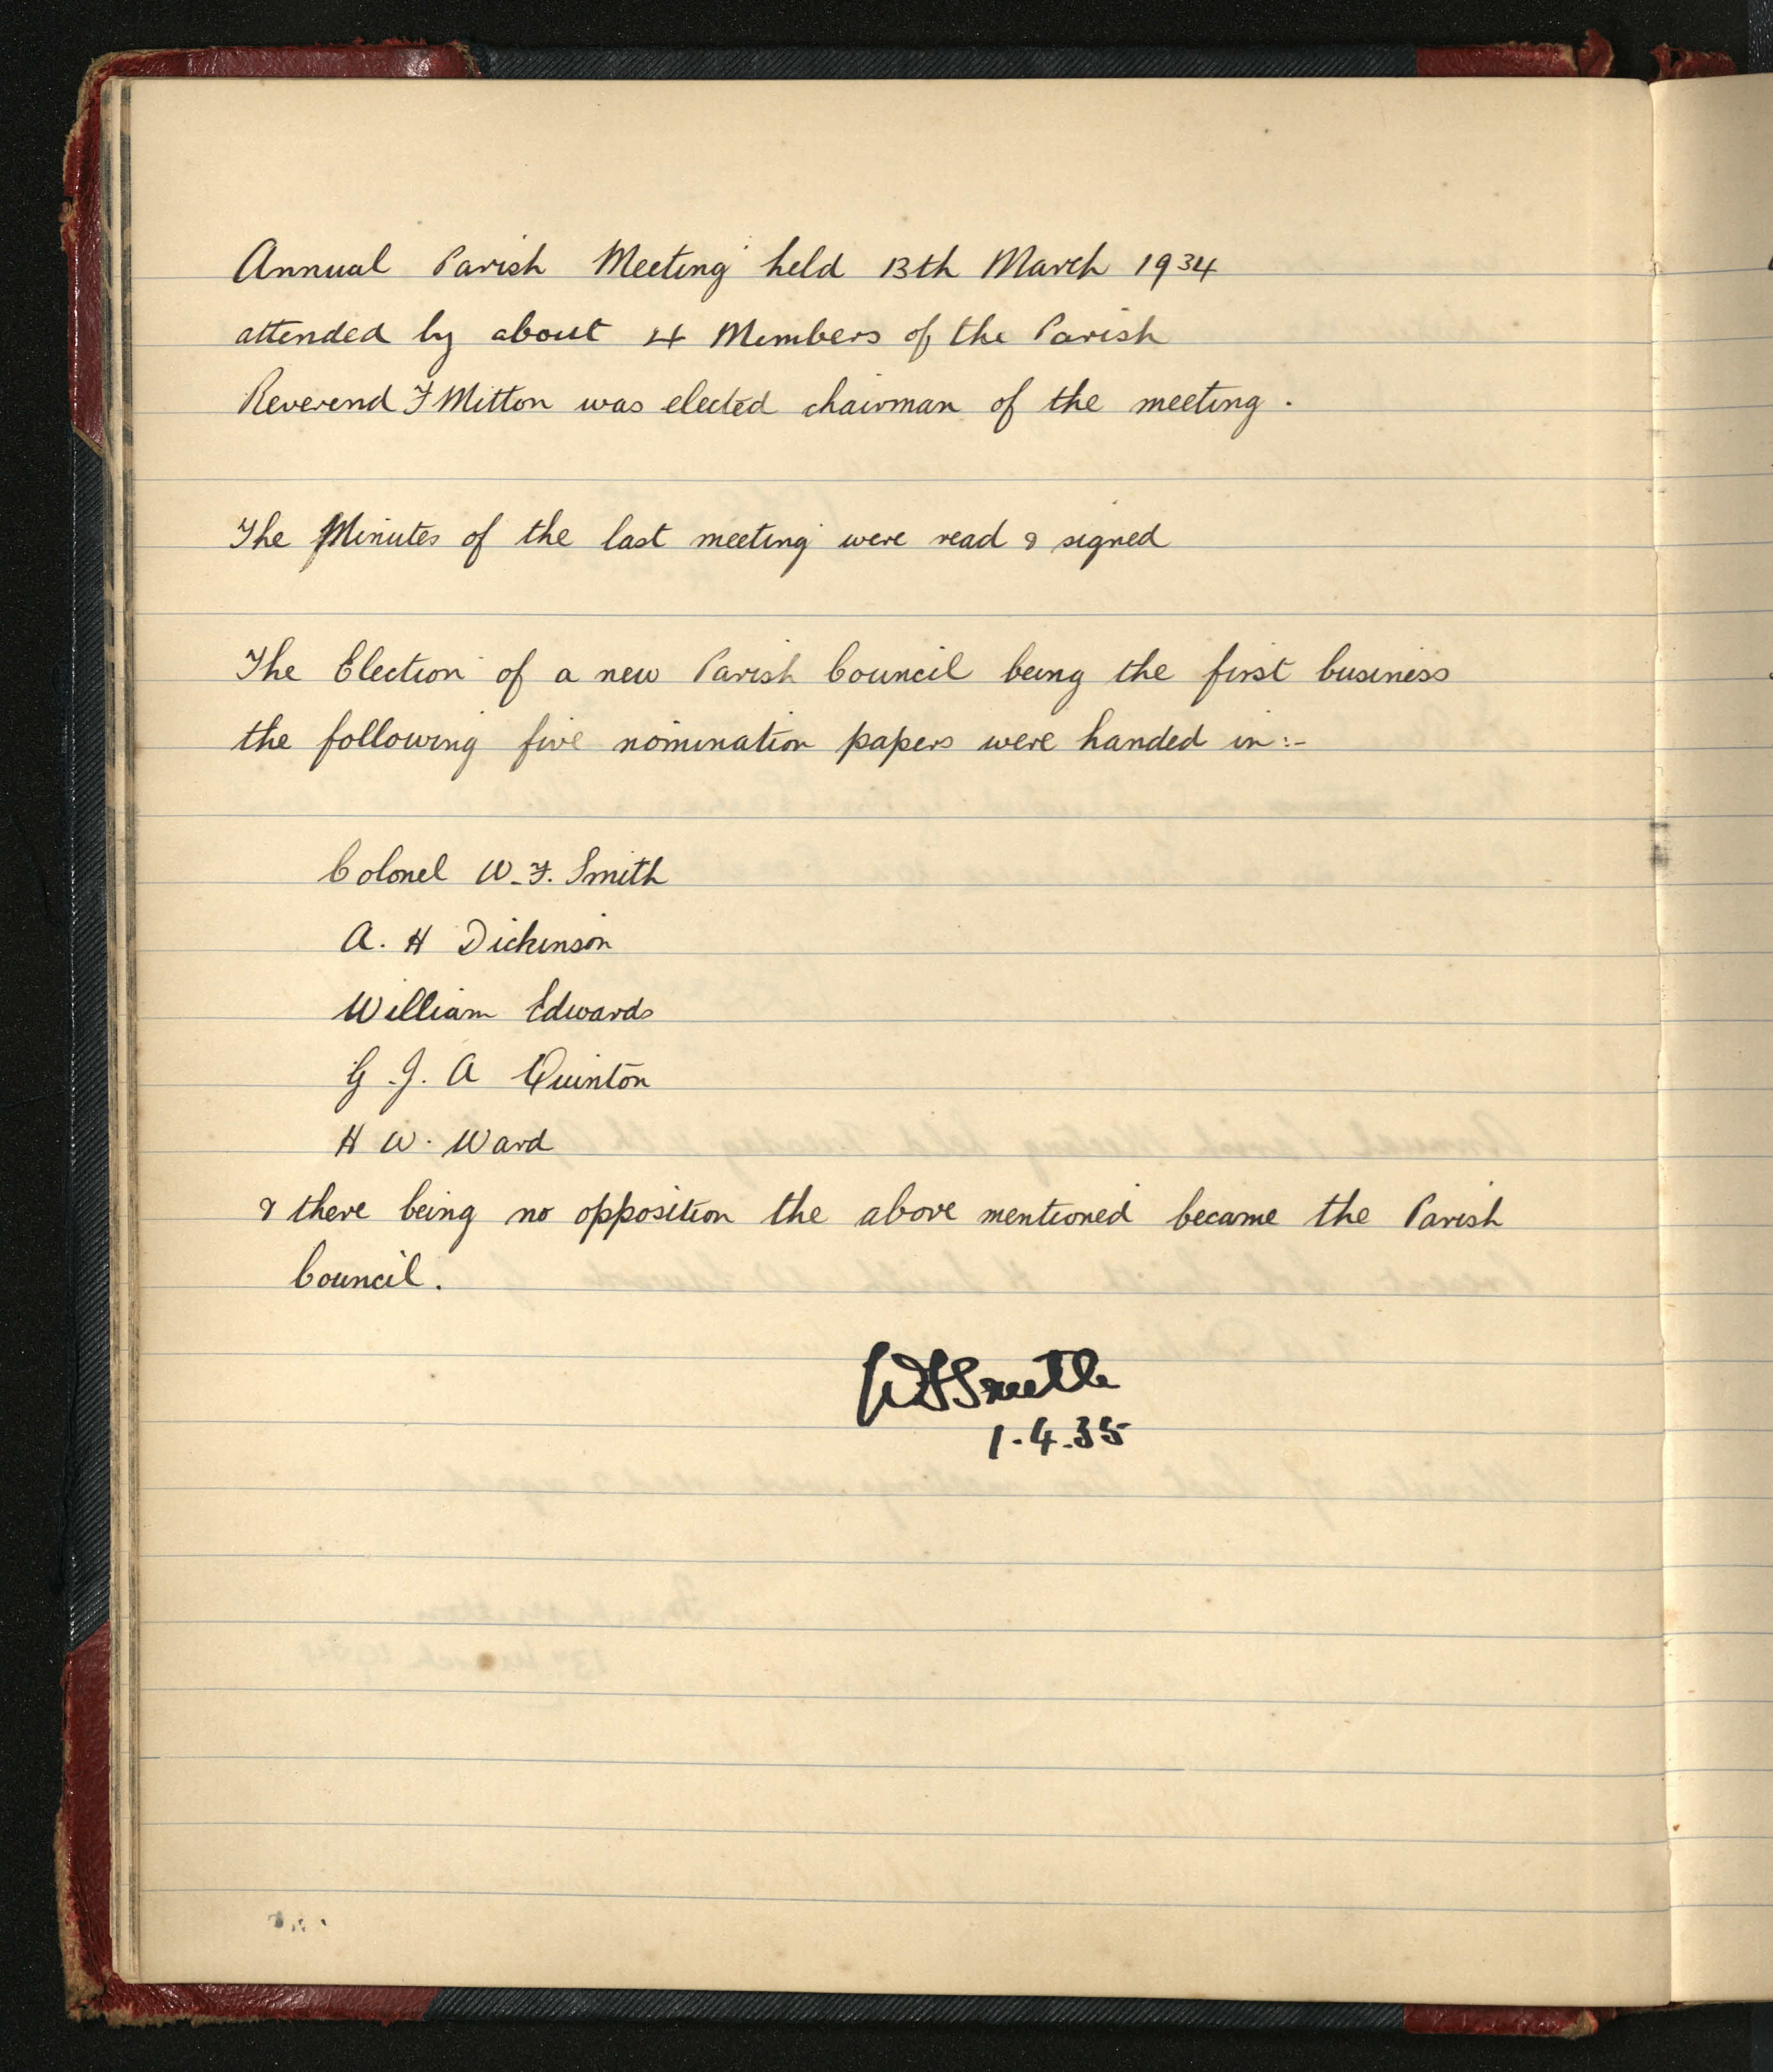 Annual Parish Meeting held 13th March 1934
attended by about 4 Members of the Parish
Reverend F Mitton was elected chairman of the meeting.
The Minutes of the last meeting were read & signed
The Election of a new Parish Council being the first business
the following five nomination papers were handed in:-
Colonel W.F. Smith
A. H Dickinson
William Edwards
G. J. A Quinton
H W. Ward
& there being no opposition the above mentioned became the Parish
Council.
WFSmith
1.4.35